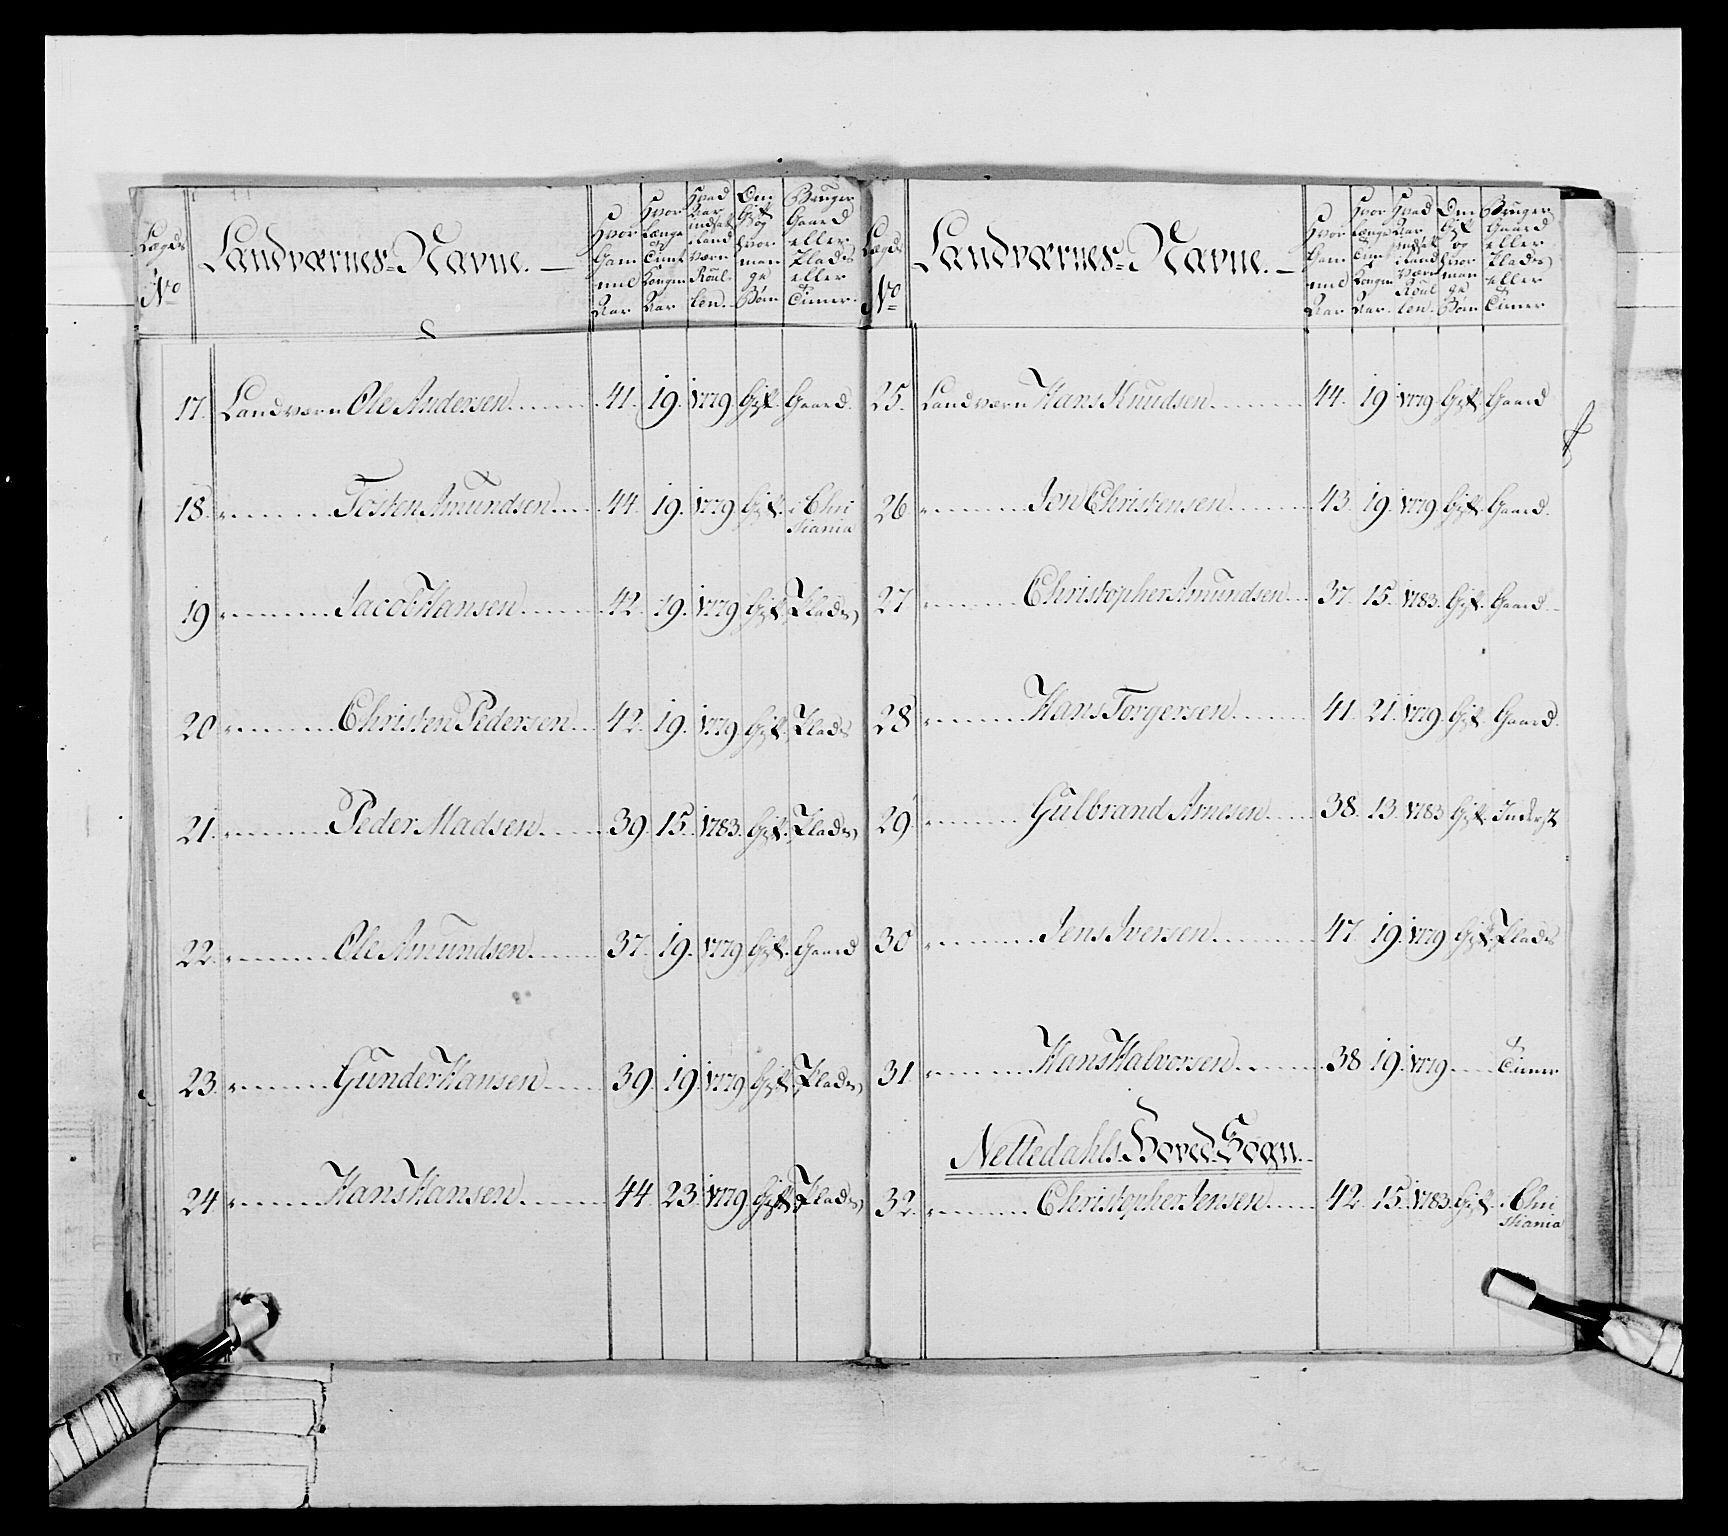 Lægds No
Landværnes Navne.
Hvor Gammel Aar
Hvor længe Tient Kongen Aar
Hvad Aar indsat i Landværn Roullen.
Om Gift og hvor mange Børn
Bruger Gaard eller Plads eller Tiener.
17. Landværn Ole Andersen 41. 19. 1779 Gift. Gaard.
18. Tosten Amundsen 44. 19. 1779 Gift. i Chri
stiania
19 Jacob Hansen 42. 19. 1779 Gift. Plads
20 Christen Pedersen 42. 19. 1779 Gift. Plads
21. Peder Madsen 39. 15. 1783. Gift. Plads
22. Ole Amundsen 37. 19. 1779 Gift. Gaard
23. Gunder Hansen 39. 19 1779 Gift. Plads
24 Hans Hansen 44 23. 1779. Gift Plads
Lægds No
Landværnes Navne.
Hvor Gammel Aar
Hvor længe Tient Kongen Aar.
Hvad Aar indsat i Landværn Roullen.
Om Gift og hvor mange Børn
Bruger Gaard eller Plads eller Tiener
25. Landværn Hans Knudsen 44. 19 1779 Gift Gaard
26 Jon Christensen 43. 19. 1779. Gift. Gaard.
27 Christopher Amundsen 37. 15. 1783. Gift. Gaard
28 Hans Torgersen 41. 21. 1779. Gift. Gaard.
29 Gulbrand Arnesen 38. 13. 1783 Gift. Inderst
30 Jens Iversen 47 19. 1779 Gift. Plads
31 Hans Halvorsen 38 19. 1779 Tiener
Nettedahls Hoved Sogn.
32. Christopher Jensen 42. 15. 1783. Gift. i Chri
stiania